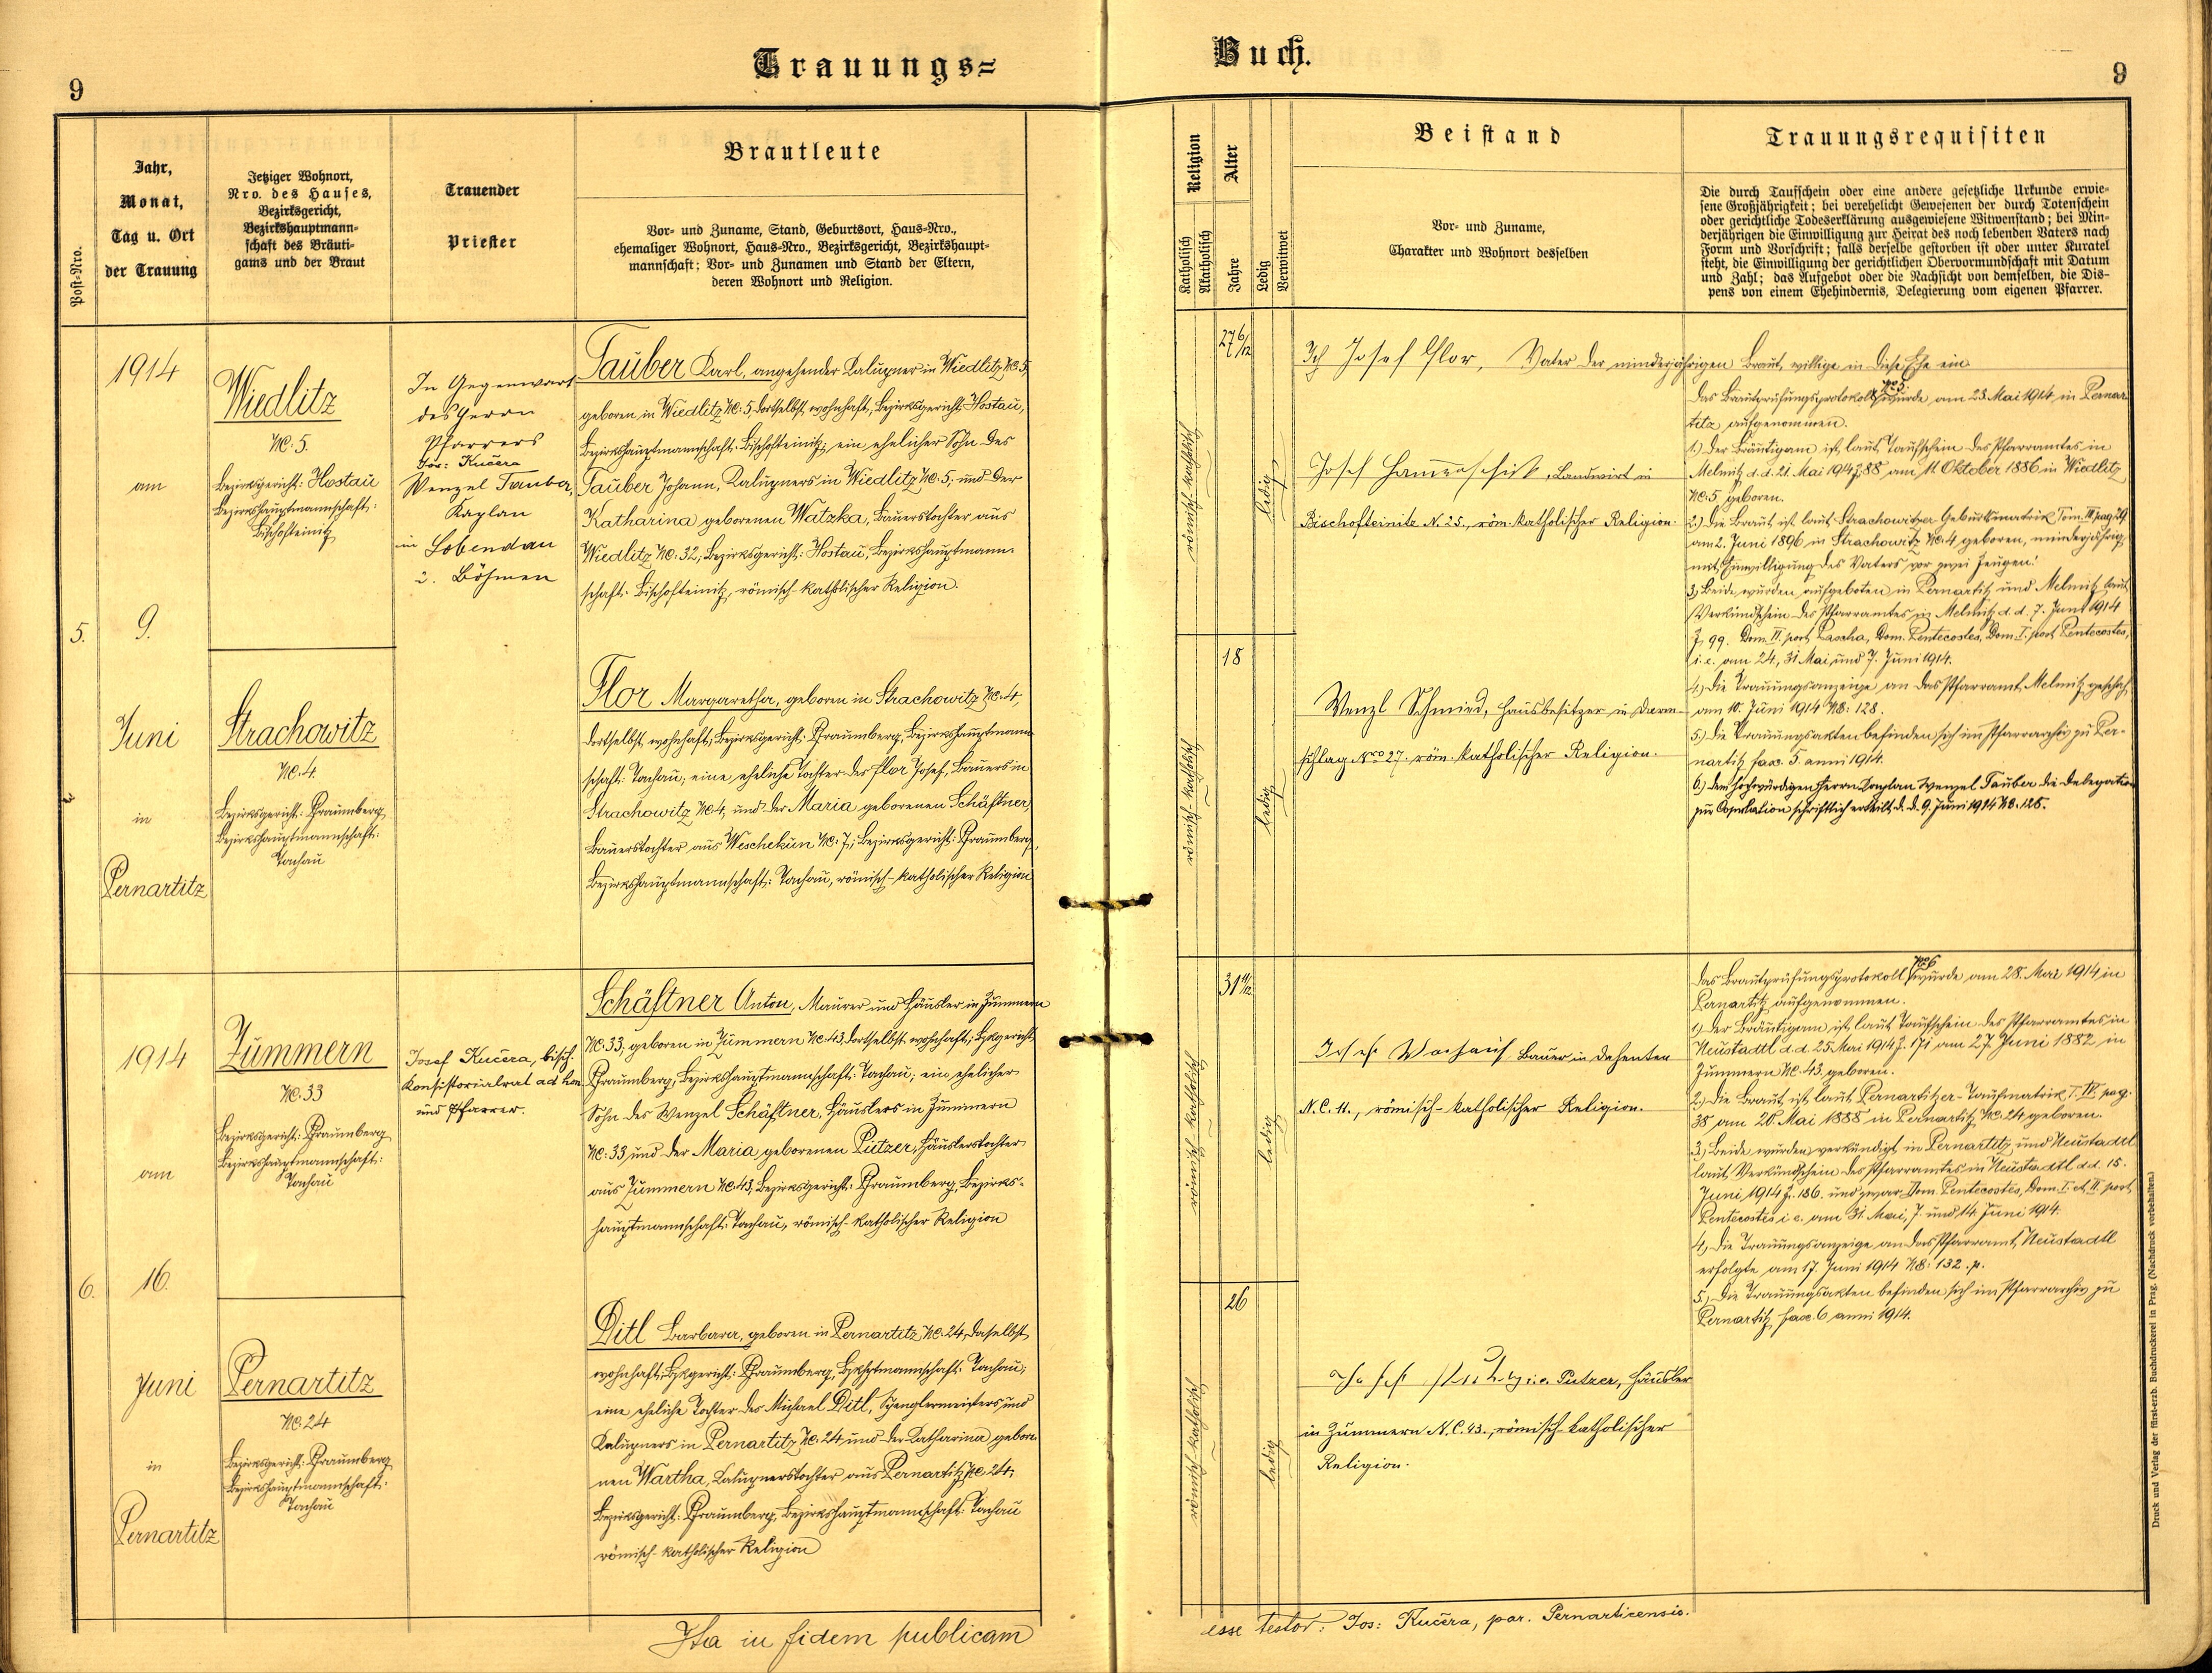 9
Trauungs=
Post-Nro.
Jahr,
Monat,
Tag u. Ort
der Trauung
Jetziger Wohnort,
Nro. des Hauses,
Bezirksgericht,
Bezirkshauptmann=
schaft des Bräuti=
gams und der Braut
Trauender
Priester
Brautleute
Vor- und Zuname, Stand, Geburtsort, Haus-Nro.,
ehemaliger Wohnort, Haus-Nro., Bezirksgericht, Bezirkshaupt=
mannschaft; Vor- und Zunamen und Stand der Eltern,
deren Wohnort und Religion.
5.
1914
am
9.
Juni
in
Pernartitz
Wiedlitz
NC. 5.
Bezirksgericht: Hostau
Bezirkshauptmannschaft:
Bischofteinitz
Strachowitz
NC. 4.
Bezirksgericht: Pfraumberg
Bezirkshauptmannschaft:
Tachau
In Gegenwart
des Herrn
Pfarrers
Jos: Kučera
Wenzel Tauber,
Kaplan
in Lobendau
i. Böhmen
Tauber Karl, angehender Kalupner in Wiedlitz NC. 5,
geboren in Wiedlitz NC: 5, dortselbst wohnhaft, Bezirksgericht: Hostau,
Bezirkshauptmannschaft: Bischofteinitz; ein ehelicher Sohn des
Tauber Johann, Kalupners in Wiedlitz NC: 5, und der
Katharina geborenen Watzka, Bauerstochter aus
Wiedlitz NC: 32, Bezirksgericht: Hostau, Bezirkshauptmann-
schaft: Bischofteinitz, römisch-katholischer Religion.
Flor Margaretha, geboren in Strachowitz NC. 4,
dortselbst wohnhaft; Bezirksgericht: Pfraumberg, Bezirkshauptmann-
schaft: Tachau; eine eheliche Tochter des Flor Josef, Bauers in
Strachowitz NC 4, und der Maria geborenen Schäftner,
Bauerstochter aus Weschekun NC: 7; Bezirksgericht: Pfraumberg,
Bezirkshauptmannschaft: Tachau, römisch-katholischer Religion
6.
1914
am
16.
Juni
in
Pernartitz
Zummern
NC. 33
Bezirksgericht: Pfraumberg
Bezirkshauptmannschaft:
Tachau
Pernartitz
NC. 24
Bezirksgericht: Pfraumberg
Bezirkshauptmannschaft:
Tachau
Josef Kučera, bisch.
Konsistorialrat ad hon.
und Pfarrer.
Schäftner Anton, Maurer und Häusler in Zummern
NC. 33, geboren in Zummern NC. 43, dortselbst wohnhaft; Bzkgericht:
Pfraumberg, Bezirkshauptmannschaft: Tachau; ein ehelicher
Sohn des Wenzel Schäftner, Häuslers in Zummern
NC: 33 und der Maria geborenen Putzer, Häuslerstochter
aus Zummern NC. 43, Bezirksgericht: Pfraumberg, Bezirks-
hauptmannschaft: Tachau, römisch-katholischer Religion
Ditl Barbara, geboren in Pernartitz NC. 24, daselbst
wohnhaft; Bzkgericht: Pfraumberg, Bzkhptmannschaft: Tachau;
eine eheliche Tochter des Michael Ditl, Spenglermeisters und
Kalupners in Pernartitz NC. 24 und der Katharina gebore-
nen Wartha, Kalupnerstochter aus Pernartitz NC 24,
Bezirksgericht: Pfraumberg, Bezirkshauptmannschaft: Tachau
römisch-katholischer Religion
Ita in fidem publicam
Buch.
9
Religion
Katholisch
Akatholisch
Alter
Jahre
Ledig
Verwitwet
Beistand
Vor- und Zuname,
Charakter und Wohnort desselben
Trauungsrequisiten
Die durch Taufschein oder eine andere gesetzliche Urkunde erwie=
sene Großjährigkeit; bei verehelicht Gewesenen der durch Totenschein
oder gerichtliche Todeserklärung ausgewiesene Witwenstand; bei Min=
derjährigen die Einwilligung zur Heirat des noch lebenden Vaters nach
Form und Vorschrift; falls derselbe gestorben ist oder unter Kuratel
steht, die Einwilligung der gerichtlichen Obervormundschaft mit Datum
und Zahl; das Aufgebot oder die Nachsicht von demselben, die Dis=
pens von einem Ehehindernis, Delegierung vom eigenen Pfarrer.
römisch-katholisch
27 6/12
ledig
Ich Josef Flor, Vater der minderjährigen Braut, willige in diese Ehe ein
Josef , Landwirt in
Bischofteinitz N. 25., röm. katholischer Religion.
römisch-katholisch
18
ledig
Wenzl Schmied, Hausbesitzer in Darm-
schlag Nro 27. röm. katholischer Religion.
Das Brautprüfungsprotokoll No 5. wurde am 23. Mai 1914 in Pernar-
titz aufgenommen.
1.) Der Bräutigam ist laut Taufschein des Pfarramtes in
Melmitz d. d. 21. Mai 1914 Z. 88 am 11. Oktober 1886 in Wiedlitz
NC. 5 geboren.
2.) Die Braut ist laut Strachowitzer Geburtsmatrik Tom. III pag. 29.
am 2. Juni 1896 in Strachowitz NC. 4 geboren, minderjährig,
mit Einwilligung des Vaters vor zwei Zeugen!
3.) Beide wurden aufgeboten in Pernartitz und Melmitz laut
Verkündschein des Pfarramtes in Melmitz d. d. 7. Juni 1914
Z. 99. Dom. VI. post Pascha, Dom. Pentecostes, Dom. I. post Pentecostes,
i. e. am 24., 31. Mai und 7. Juni 1914.
4.) Die Trauungsanzeige an das Pfarramt Melmitz geschah
am 10. Juni 1914 NE: 128.
5.) Die Trauungsakten befinden sich im Pfarrarchiv zu Per-
nartitz fasc. 5. anni 1914.
6.) Dem hochwürdigen Herrn Kaplan Wenzel Tauber die Delegation
zur Copulation schriftlich erteilt d. d. 9. Juni 1914 NE. 128.
römisch-katholisch
31 11/12
ledig
Josef Bauer in Dehenten
N. C. 11., römisch-katholischer Religion.
römisch-katholisch
26
ledig
Josef i. e. Putzer, Häusler
in Zummern N. C. 43., römisch-katholischer
Religion.
Das Brautprüfungsprotokoll No 6 wurde am 28. Mai 1914 in
Pernartitz aufgenommen.
1.) Der Bräutigam ist laut Taufschein des Pfarramtes in
Neustadtl d. d. 25 Mai 1914 Z. 171 am 27. Juni 1882 in
Zummern NC. 43. geboren.
2.) Die Braut ist laut Pernartitzer-Taufmatrik T. IV. pag.
38 am 20. Mai 1888 in Pernartitz NC. 24 geboren.
3.) Beide wurden verkündigt in Pernartitz und Neustadtl
laut Verkündschein des Pfarramtes in Neustadtl d. d. 15.
Juni 1914 Z. 186. und zwar Dom. Pentecostes, Dom. I. et II. post
Pentecostes i. e. am 31. Mai, 7. und 14. Juni 1914.
4.) Die Trauungsanzeige an das Pfarramt Neustadtl
erfolgte am 17. Juni 1914 NE: 132. p.
5.) Die Trauungsakten befinden sich im Pfarrarchiv zu
Pernartitz, fasc. 6 anni 1914.
esse testor: Jos: Kučera, par. Pernarticensis.
Druck und Verlag der fürst-erzb. Buchdruckerei in Prag. (Nachdruck vorbehalten.)